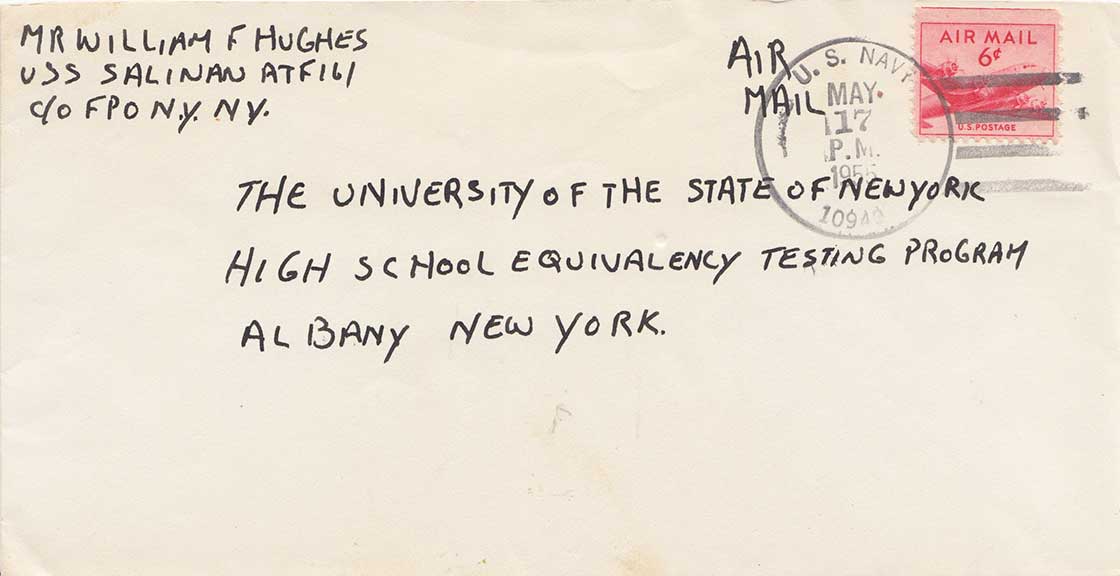 MR WILLIAM F HUGHES
USS SALINAN ATF161
c/o FPO N.Y. NY.
AIR
MAIL
U. S. NAVY
MAY
17
P.M.
1955
AIR MAIL
6¢
U.S. POSTAGE
THE UNIVERSITY OF THE STATE OF NEW YORK
HIGH SCHOOL EQUIVALENCY TESTING PROGRAM
ALBANY NEW YORK.